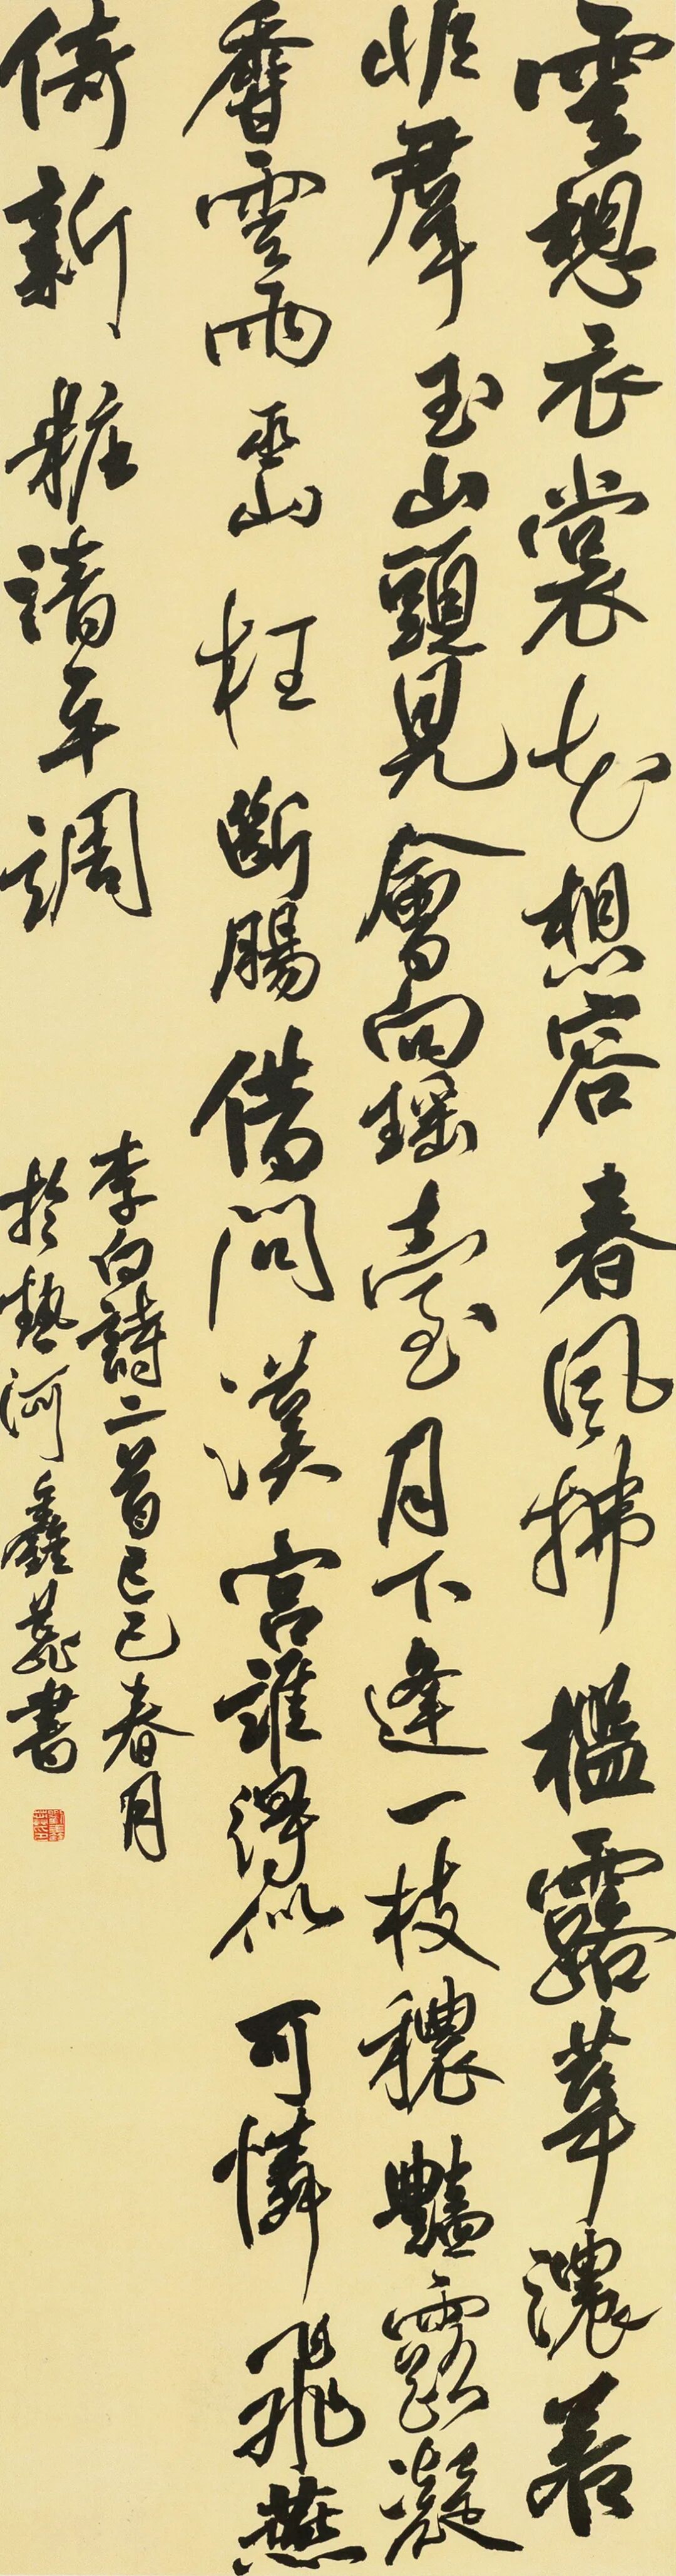 雲想衣裳花想容春風拂檻露華濃若
非羣玉山頭見會向瑤臺月下逢一枝穠豔露凝
香雲雨巫山枉斷腸借問漢宮誰得似可憐飛燕
倚新粧清平調
李白詩二首己巳春月
於執河鑫蕊書